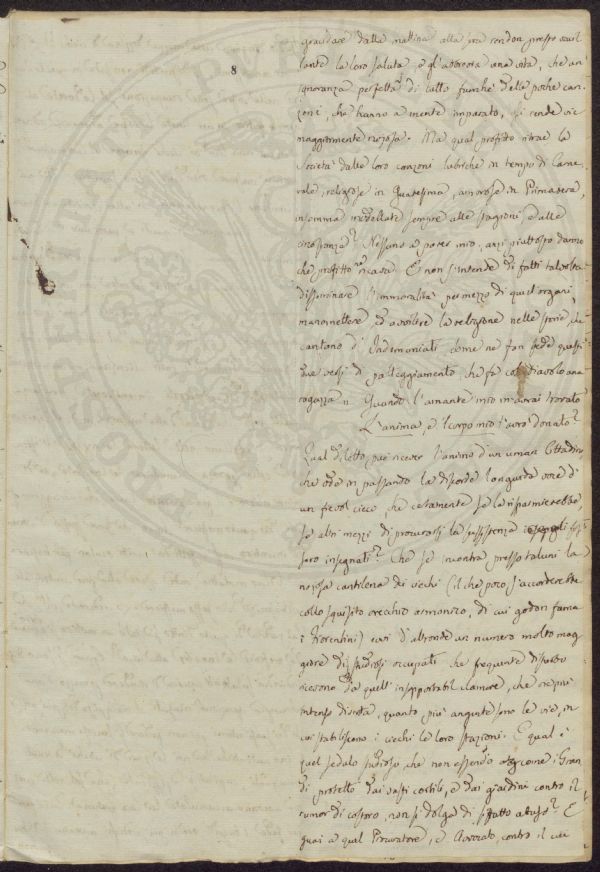 8
gridare dalla mattina alla sera rendon presto
lante la loro salute, e gl'avvezza una vita, che un'
ignoranza perfetta di tutto fuorchè delle poche can-
zoni, che hanno a mente imparato, si rende vie
maggiormente noiosa. Ma qual profitto ritrae la
Società dalle loro canzoni lubriche in tempo di Carne
vale, religiose in Quaresima, amorose in Primavera,
insomma sempre alle stagioni, e alle
circostanze? Nessuno a parer mio, anzi piuttosto danno
che profitto ricava. E non s'intende di fatti talvolta
disseminare l'immoralità per mezzo di quest'organi,
manomettere, ed avvilire la religione nelle storie, che
cantano d'Indemoniati come ne fan fede questi
due versi di patteggiamento, che fa col Diavolo una
ragazza "Quando l'amante mio m'avrai trovato
L'anima, e 'l corpo mio t'avrò donato?
Qual diletto può ricever l'animo d'un uman Cittadino,
che ode in passando la discorde languida voce di
un fievol cieco, che certamente se la risparmierebbe,
se altri mezzi di procurarsi la sussistenza gli fos
sero insegnati? Che se incontra presso taluni la
noiosa cantilena dei ciechi (il che poco s'accorderebbe
collo squisito orecchio armonico, di cui godon fama
i Fiorentini) evvi d'altronde un numero molto mag
giore di studiosi occupati che frequente disturbo
ricevono da quell'insopportabil clamore, che vie più
intenso diventa, quanto più anguste sono le vie, in
cui stabiliscono i ciechi le loro stazioni. E qual è
quel sedulo studioso, che non essendo come i Gran
di protetto dai vasti cortili, e dai giardini contro il
rumor di costoro, non si dolga di sì fatto abuso? E
guai a quel Procuratore, o Avvocato, contro il cui